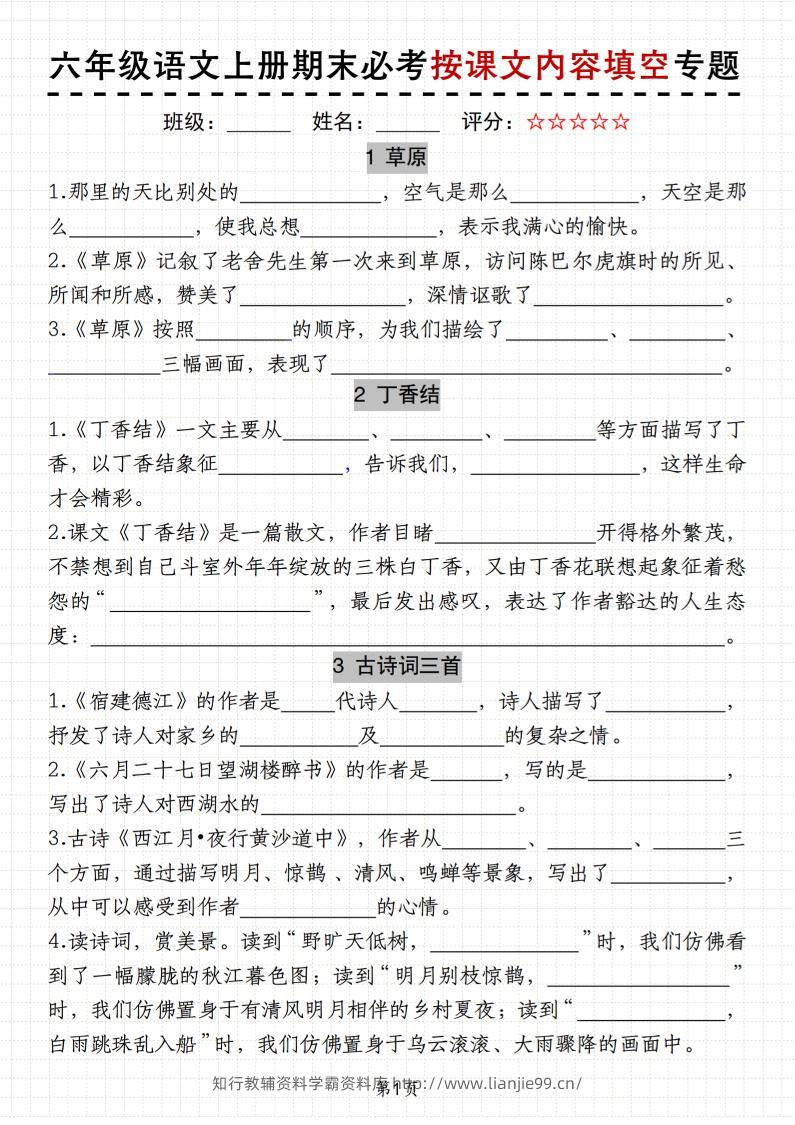 六年级语文上册期末必考按课文内容填空专题
班级：______ 姓名：______ 评分：☆☆☆☆☆
1 草原
1.那里的天比别处的_____________，空气是那么____________，天空是那
么____________，使我总想_____________，表示我满心的愉快。
2.《草原》记叙了老舍先生第一次来到草原，访问陈巴尔虎旗时的所见、
所闻和所感，赞美了________________，深情讴歌了__________________。
3.《草原》按照_________的顺序，为我们描绘了__________、_________、
___________三幅画面，表现了______________________________________。
2 丁香结
1.《丁香结》一文主要从________、_________、_________等方面描写了丁
香，以丁香结象征____________，告诉我们，________________，这样生命
才会精彩。
2.课文《丁香结》是一篇散文，作者目睹________________开得格外繁茂，
不禁想到自己斗室外年年绽放的三株白丁香，又由丁香花联想起象征着愁
怨的“____________________”，最后发出感叹，表达了作者豁达的人生态
度：______________________________________________________________。
3 古诗词三首
1.《宿建德江》的作者是_____代诗人________，诗人描写了____________，
抒发了诗人对家乡的____________及____________的复杂之情。
2.《六月二十七日望湖楼醉书》的作者是_______，写的是_____________，
写出了诗人对西湖水的_________________________。
3.古诗《西江月•夜行黄沙道中》，作者从________、________、_______三
个方面，通过描写明月、惊鹊 、清风、鸣蝉等景象，写出了___________，
从中可以感受到作者_____________的心情。
4.读诗词，赏美景。读到“野旷天低树，______________”时，我们仿佛看
到了一幅朦胧的秋江暮色图；读到“明月别枝惊鹊，_________________”
时，我们仿佛置身于有清风明月相伴的乡村夏夜；读到“______________，
白雨跳珠乱入船”时，我们仿佛置身于乌云滚滚、大雨骤降的画面中。
知行教辅资料学霸资料库 http://www.lianjie99.cn/
第1页